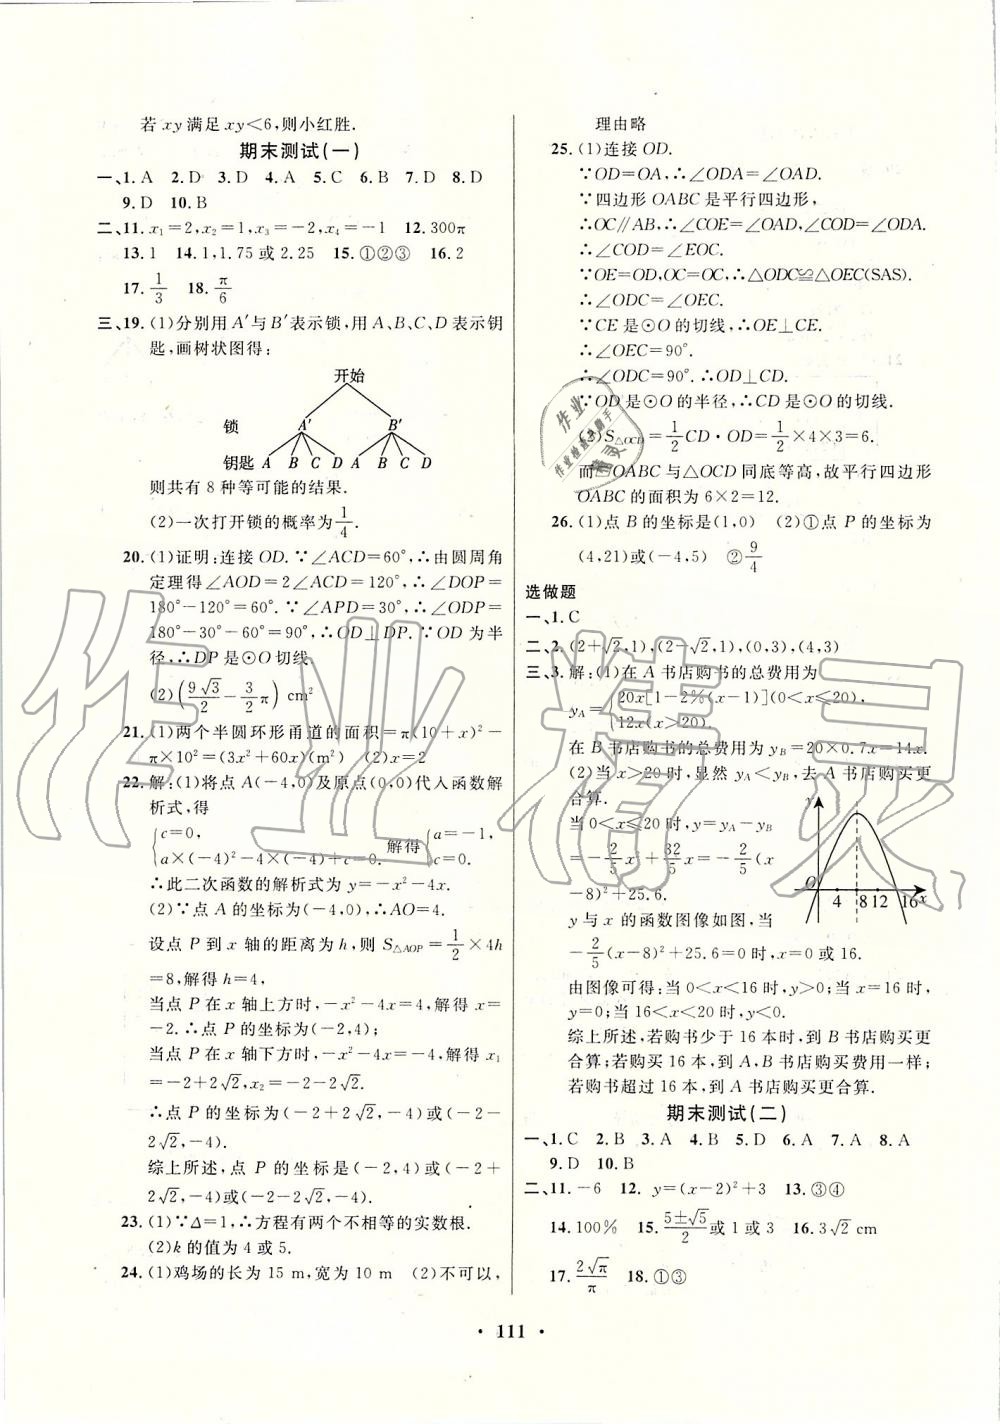 若 xy 满足 xy<6,则小红胜.
期末测试(一)
一、1. A 2. D 3. D 4. A 5. C 6. B 7. D 8. D
9. D 10. B
二、11. x₁=2,x₂=1,x₃=-2,x₄=-1 12. 300π
13. 1 14. 1,1.75 或 2.25 15. ①②③ 16. 2
17. 1/3 18. π/6
三、19. (1)分别用 A′与 B′表示锁,用 A、B、C、D 表示钥
匙,画树状图得:
开始
锁 A′ B′
钥匙 A B C D A B C D
则共有 8 种等可能的结果.
(2)一次打开锁的概率为 1/4.
20. (1)证明:连接 OD. ∵∠ACD=60°,∴由圆周角
定理得∠AOD=2∠ACD=120°,∴∠DOP=
180°-120°=60°. ∵∠APD=30°,∴∠ODP=
180°-30°-60°=90°,∴OD⊥DP. ∵OD 为半
径,∴DP 是⊙O 切线.
(2)(9√3/2 - 3/2 π) cm²
21. (1)两个半圆环形甬道的面积=π(10+x)²-
π×10²=(3x²+60x)(m²) (2)x=2
22. 解:(1)将点 A(-4,0)及原点(0,0)代入函数解
析式,得
{c=0, a×(-4)²-4×(-4)+c=0. 解得{a=-1, c=0.
∴此二次函数的解析式为 y=-x²-4x.
(2)∵点 A 的坐标为(-4,0),∴AO=4.
设点 P 到 x 轴的距离为 h,则 S△AOP=1/2×4h
=8,解得 h=4,
当点 P 在 x 轴上方时,-x²-4x=4,解得 x=
-2.∴点 P 的坐标为(-2,4);
当点 P 在 x 轴下方时,-x²-4x=-4,解得 x₁
=-2+2√2,x₂=-2-2√2.
∴点 P 的坐标为(-2+2√2,-4)或(-2-
2√2,-4);
综上所述,点 P 的坐标是(-2,4)或(-2+
2√2,-4)或(-2-2√2,-4).
23. (1)∵Δ=1,∴方程有两个不相等的实数根.
(2)k 的值为 4 或 5.
24. (1)鸡场的长为 15 m,宽为 10 m (2)不可以,
理由略
25. (1)连接 OD.
∵OD=OA,∴∠ODA=∠OAD.
∵四边形 OABC 是平行四边形,
∴OC∥AB,∴∠COE=∠OAD,∠COD=∠ODA.
∴∠COD=∠EOC.
∵OE=OD,OC=OC,∴△ODC≌△OEC(SAS).
∴∠ODC=∠OEC.
∵CE 是⊙O 的切线,∴OE⊥CE.
∴∠OEC=90°.
∴∠ODC=90°.∴OD⊥CD.
∵OD 是⊙O 的半径,∴CD 是⊙O 的切线.
(2)S△OCD=1/2 CD·OD=1/2×4×3=6.
而▱OABC 与△OCD 同底等高,故平行四边形
OABC 的面积为 6×2=12.
26. (1)点 B 的坐标是(1,0) (2)①点 P 的坐标为
(4,21)或(-4,5) ②9/4
选做题
一、1. C
二、2. (2+√2,1),(2-√2,1),(0,3),(4,3)
三、3. 解:(1)在 A 书店购书的总费用为
y_A={20x[1-2%(x-1)](0<x≤20), 12x(x>20).
在 B 书店购书的总费用为 y_B=20×0.7x=14x.
(2)当 x>20 时,显然 y_A<y_B,去 A 书店购买更
合算.
当 0<x≤20 时,y=y_A-y_B
=-2/5 x²+32/5 x=-2/5(x
-8)²+25.6.
y 与 x 的函数图像如图,当
-2/5(x-8)²+25.6=0 时,x=0 或 16.
y
O 4 8 12 16 x
由图像可得:当 0<x<16 时,y>0;
当 16<x<20 时,y<0.
综上所述,若购书少于 16 本时,到 B 书店购买更
合算;若购买 16 本,到 A,B 书店购买费用一样;
若购书超过 16 本,到 A 书店购买更合算.
期末测试(二)
一、1. C 2. B 3. A 4. B 5. D 6. A 7. A 8. A
9. D 10. B
二、11. -6 12. y=(x-2)²+3 13. ③④
14. 100% 15. (5±√5)/2 或 1 或 3 16. 3√2 cm
17. 2√π/π 18. ①③
· 111 ·
作业精灵